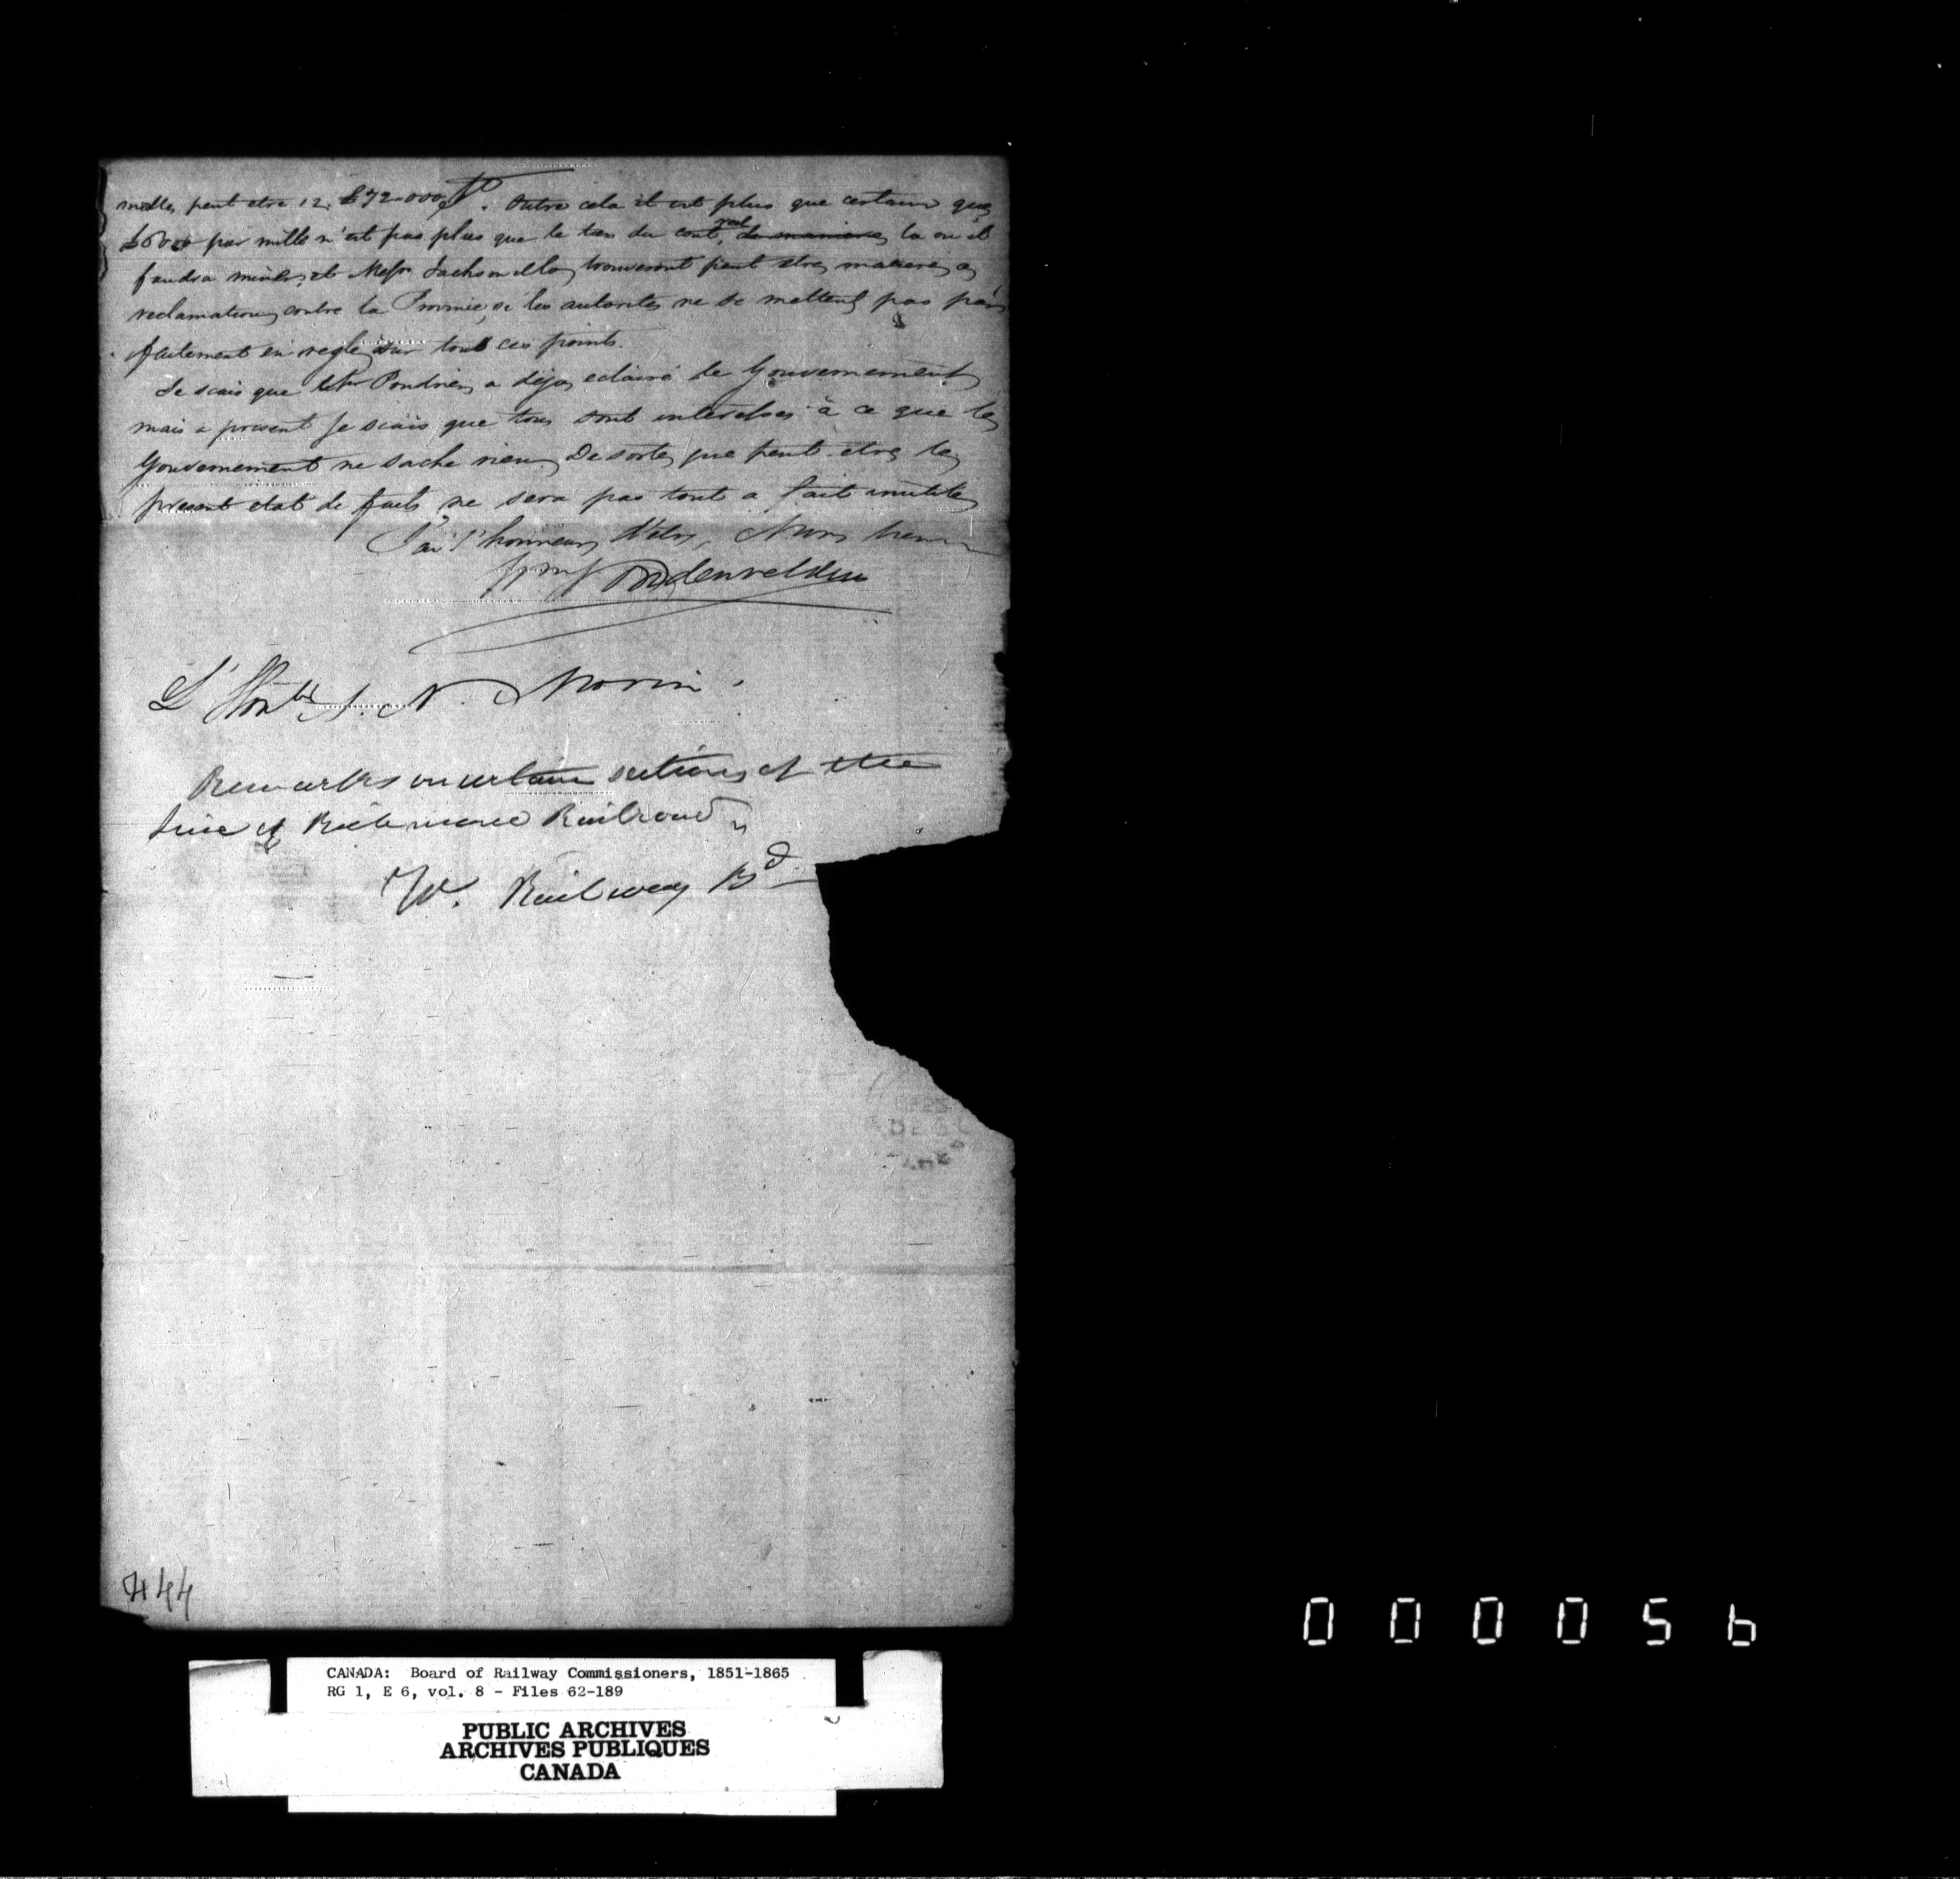 milles peut etre 12. £72-000. Outre cela il est plus que certain que
£6000 par mille n'est pas plus que le tax du cout real de maniere la ou il
faudra miner, et Messrs Jackson & Co trouveront peut etre matiere a
reclamation contre la Province, si les autorites ne se mettent pas par
faitement en regle sur tout ces points.
Je scais que Mr a deja eclairé le Gouvernement
mais a present je scais que tous sont interesses à ce que le
Gouvernement ne sache rien. De sorte que peut-etre le
present etat de faits ne sera pas tout a fait inutile
J'ai l'honneur d'etre,
L'Honble A. N. Morin.
Remarks on certain sections of the
line of Richmond Railroad
W. Railway Bd
444
000056
CANADA: Board of Railway Commissioners, 1851-1865
RG 1, E 6, vol. 8 - Files 62-189
PUBLIC ARCHIVES
ARCHIVES PUBLIQUES
CANADA